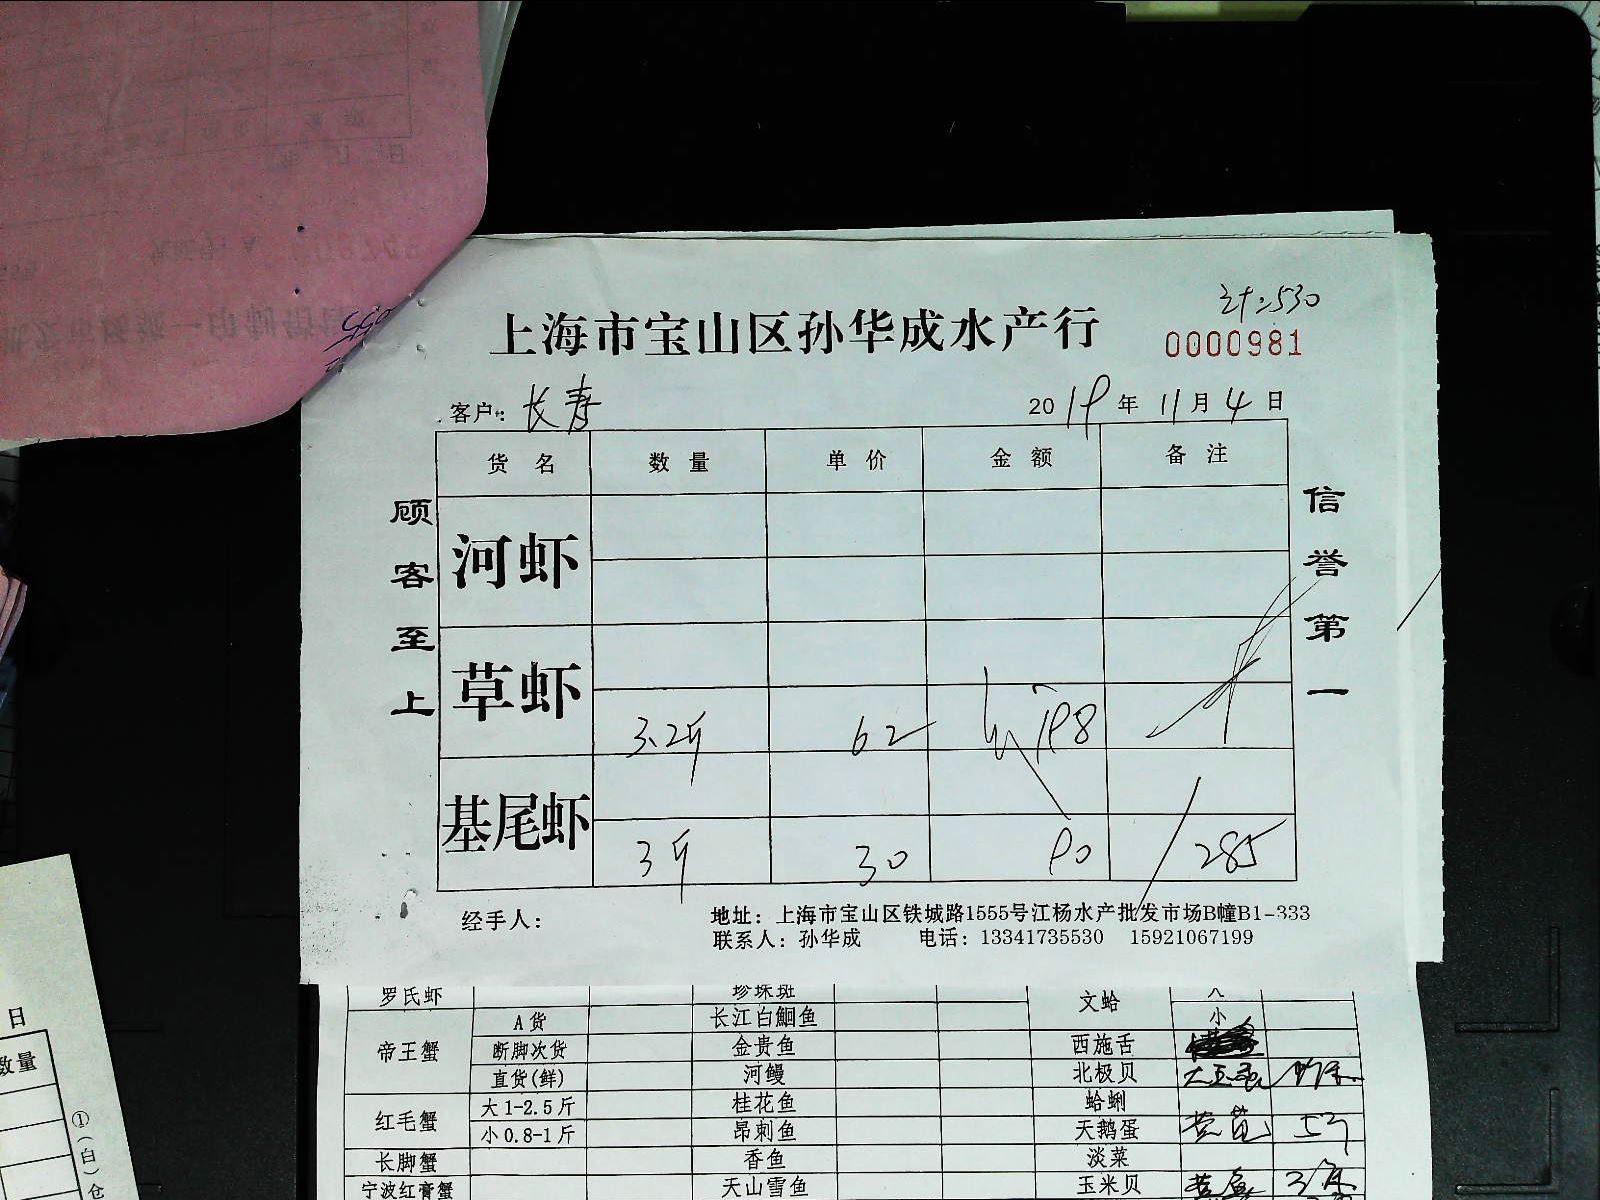 计:530
上海市宝山区孙华成水产行
0000981
客户: 长寿 2019年11月4日
货名 数量 单价 金额 备注
顾客至上
信誉第一
河虾
草虾
3.2斤 62 198
基尾虾
3斤 30 90 285
经手人: 地址: 上海市宝山区铁城路1555号江杨水产批发市场B幢B1-333
联系人: 孙华成 电话: 13341735530 15921067199
罗氏虾 珍珠斑 文蛤
帝王蟹 A货 长江白鮰鱼 小
断脚次货 金贵鱼 西施舌
直货(鲜) 河鳗 北极贝
红毛蟹 大1-2.5斤 桂花鱼 蛤蜊
小0.8-1斤 昂刺鱼 天鹅蛋
长脚蟹 香鱼 淡菜
宁波红膏蟹 天山雪鱼 玉米贝
日
数量
①(白)仓